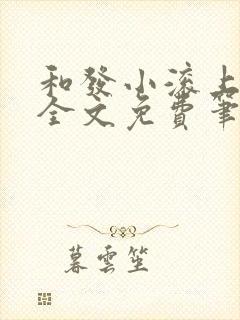 和發小滚上
全文免費筆
暮雲笙